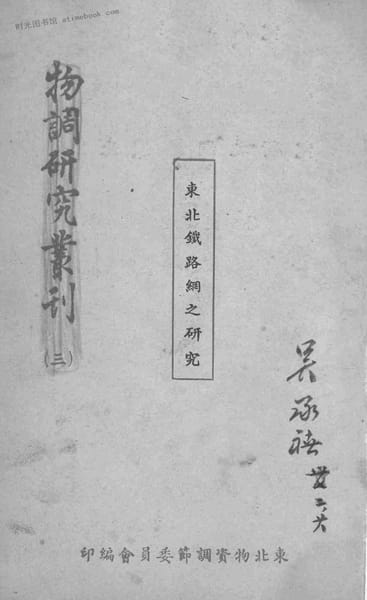 时光图书馆 atimebook.com
物調研究叢刊
(三)
東北鐵路網之研究
吴承禧
東北物資調節委員會編印